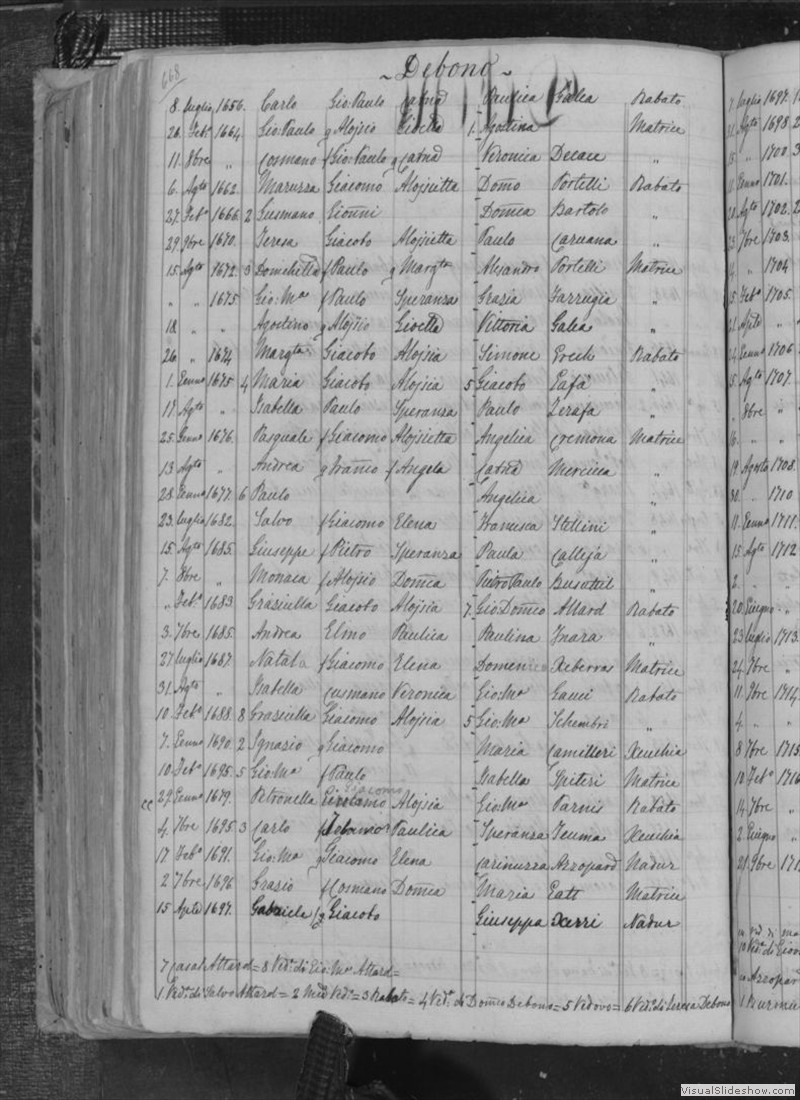 668
~ Debono ~
8. luglio 1656. Carlo Gio: Paulo Catnd Paulica Galea Rabato
26. Feb.o 1664 Gio: Paulo q Alojsio Gioella 1. Agostina Matrice
11. 8bre " Cosmano f Gio: Paulo q Catnd Veronica "
6. Agto 1662. Maruzza Giacomo Alojsietta Domco Portelli Rabato
27. Feb.o 1666. 2 Gusmano Gionni Domca Bartolo "
29. 9bre 1670. Teresa Giacobo Alojsietta Paulo Caruana "
15. Agto 1672. 3 Domichella f Paulo q Margta Alesandro Portelli Matrice
" " 1675 Gio: Ma f Paulo Speranza Grazia Farrugia "
18. " " Agostino q Alojsio Gioella Vittoria Galea "
26. " 1674 Margta Giacobo Alojsia Simone Grech Rabato
1. Gennaro 1675 4 Maria Giacobo Alojsia 5 Giacobo Zafà "
17. Agto " Isabella Paulo Speranza Paulo Zerafa "
25. Genn.o 1676. Pasquale f Giacomo Alojsietta Angelica Cremona Matrice
13. Agto " Andrea q Franco f Angela Catnd Mercieca "
28. Genn.o 1677. 6 Paulo Angelica "
23. luglio 1682. Salvo f Giacomo Elena Stellini "
15. Agto 1685. Giuseppe f Pietro Speranza Paula Calleja "
7. 8bre " Monaca f Alojsio Domca Pietro Paulo Busuttil "
" Feb.o 1683. Grasiulla Giacobo Alojsia 7. Gio: Domco Attard Rabato
3. 7bre 1685. Andrea Elmo Paulica Paulina "
27 luglio 1687. Natala f Giacomo Elena Domenica Xeberras Matrice
31. Agto " Isabella Cusmano Veronica Gio: Ma Gauci Rabato
10. Feb.o 1688. 8 Grasiulla Giacomo Alojsia 5 Gio: Ma Schembri "
7. Genn.o 1690. 2 Ignazio q Giacomo Maria Camilleri Xeuchia
10. Feb.o 1695. 5 Gio: Ma f Paulo Isabella Spiteri Matrice
cc 29. Genn.o 1679. Petronella Giacomo Alojsia Gio: Ma Parnis Rabato
4. 7bre 1695. 3 Carlo Paulica Speranza Teuma Xeuchia
17 Feb.o 1691. Gio: Ma q Giacomo Elena Catinuzza Azzopard Nadur
2 7bre 1696 Grazio f Cosmano Domca Maria Matrice
15 Aprile 1697. Gabriele q Giacobo Giuseppa Xerri Nadur
7 Casal Attard = 8 Ved.a di Gio: Ma Attard =
1 Ved.a di Salvo Attard = 2 Ved.o = 3 Rabato = 4 Ved.a di Domco Debono = 5 Vedovo = 6 Ved.a di Teresa Debono
7 luglio 1697.
Agto 1698.
1700.
11. Genn.o 1701.
20. Agto 1702.
23 7bre 1703.
4. " 1704
15. Feb.o 1705.
21. Aple "
24. Genn.o 1706.
15. Agto 1707.
" 8bre "
16. " "
19. Agosto 1708.
30. " 1710
11. Genn.o 1711.
15 Agto 1712
2. " "
20. Giugno "
23 luglio 1713
24. 7bre "
11. 9bre 1714.
4 " "
8 7bre 1715
10 Feb.o 1716
14. 7bre "
2 Giugno "
21. 9bre
VisualSlideshow.com